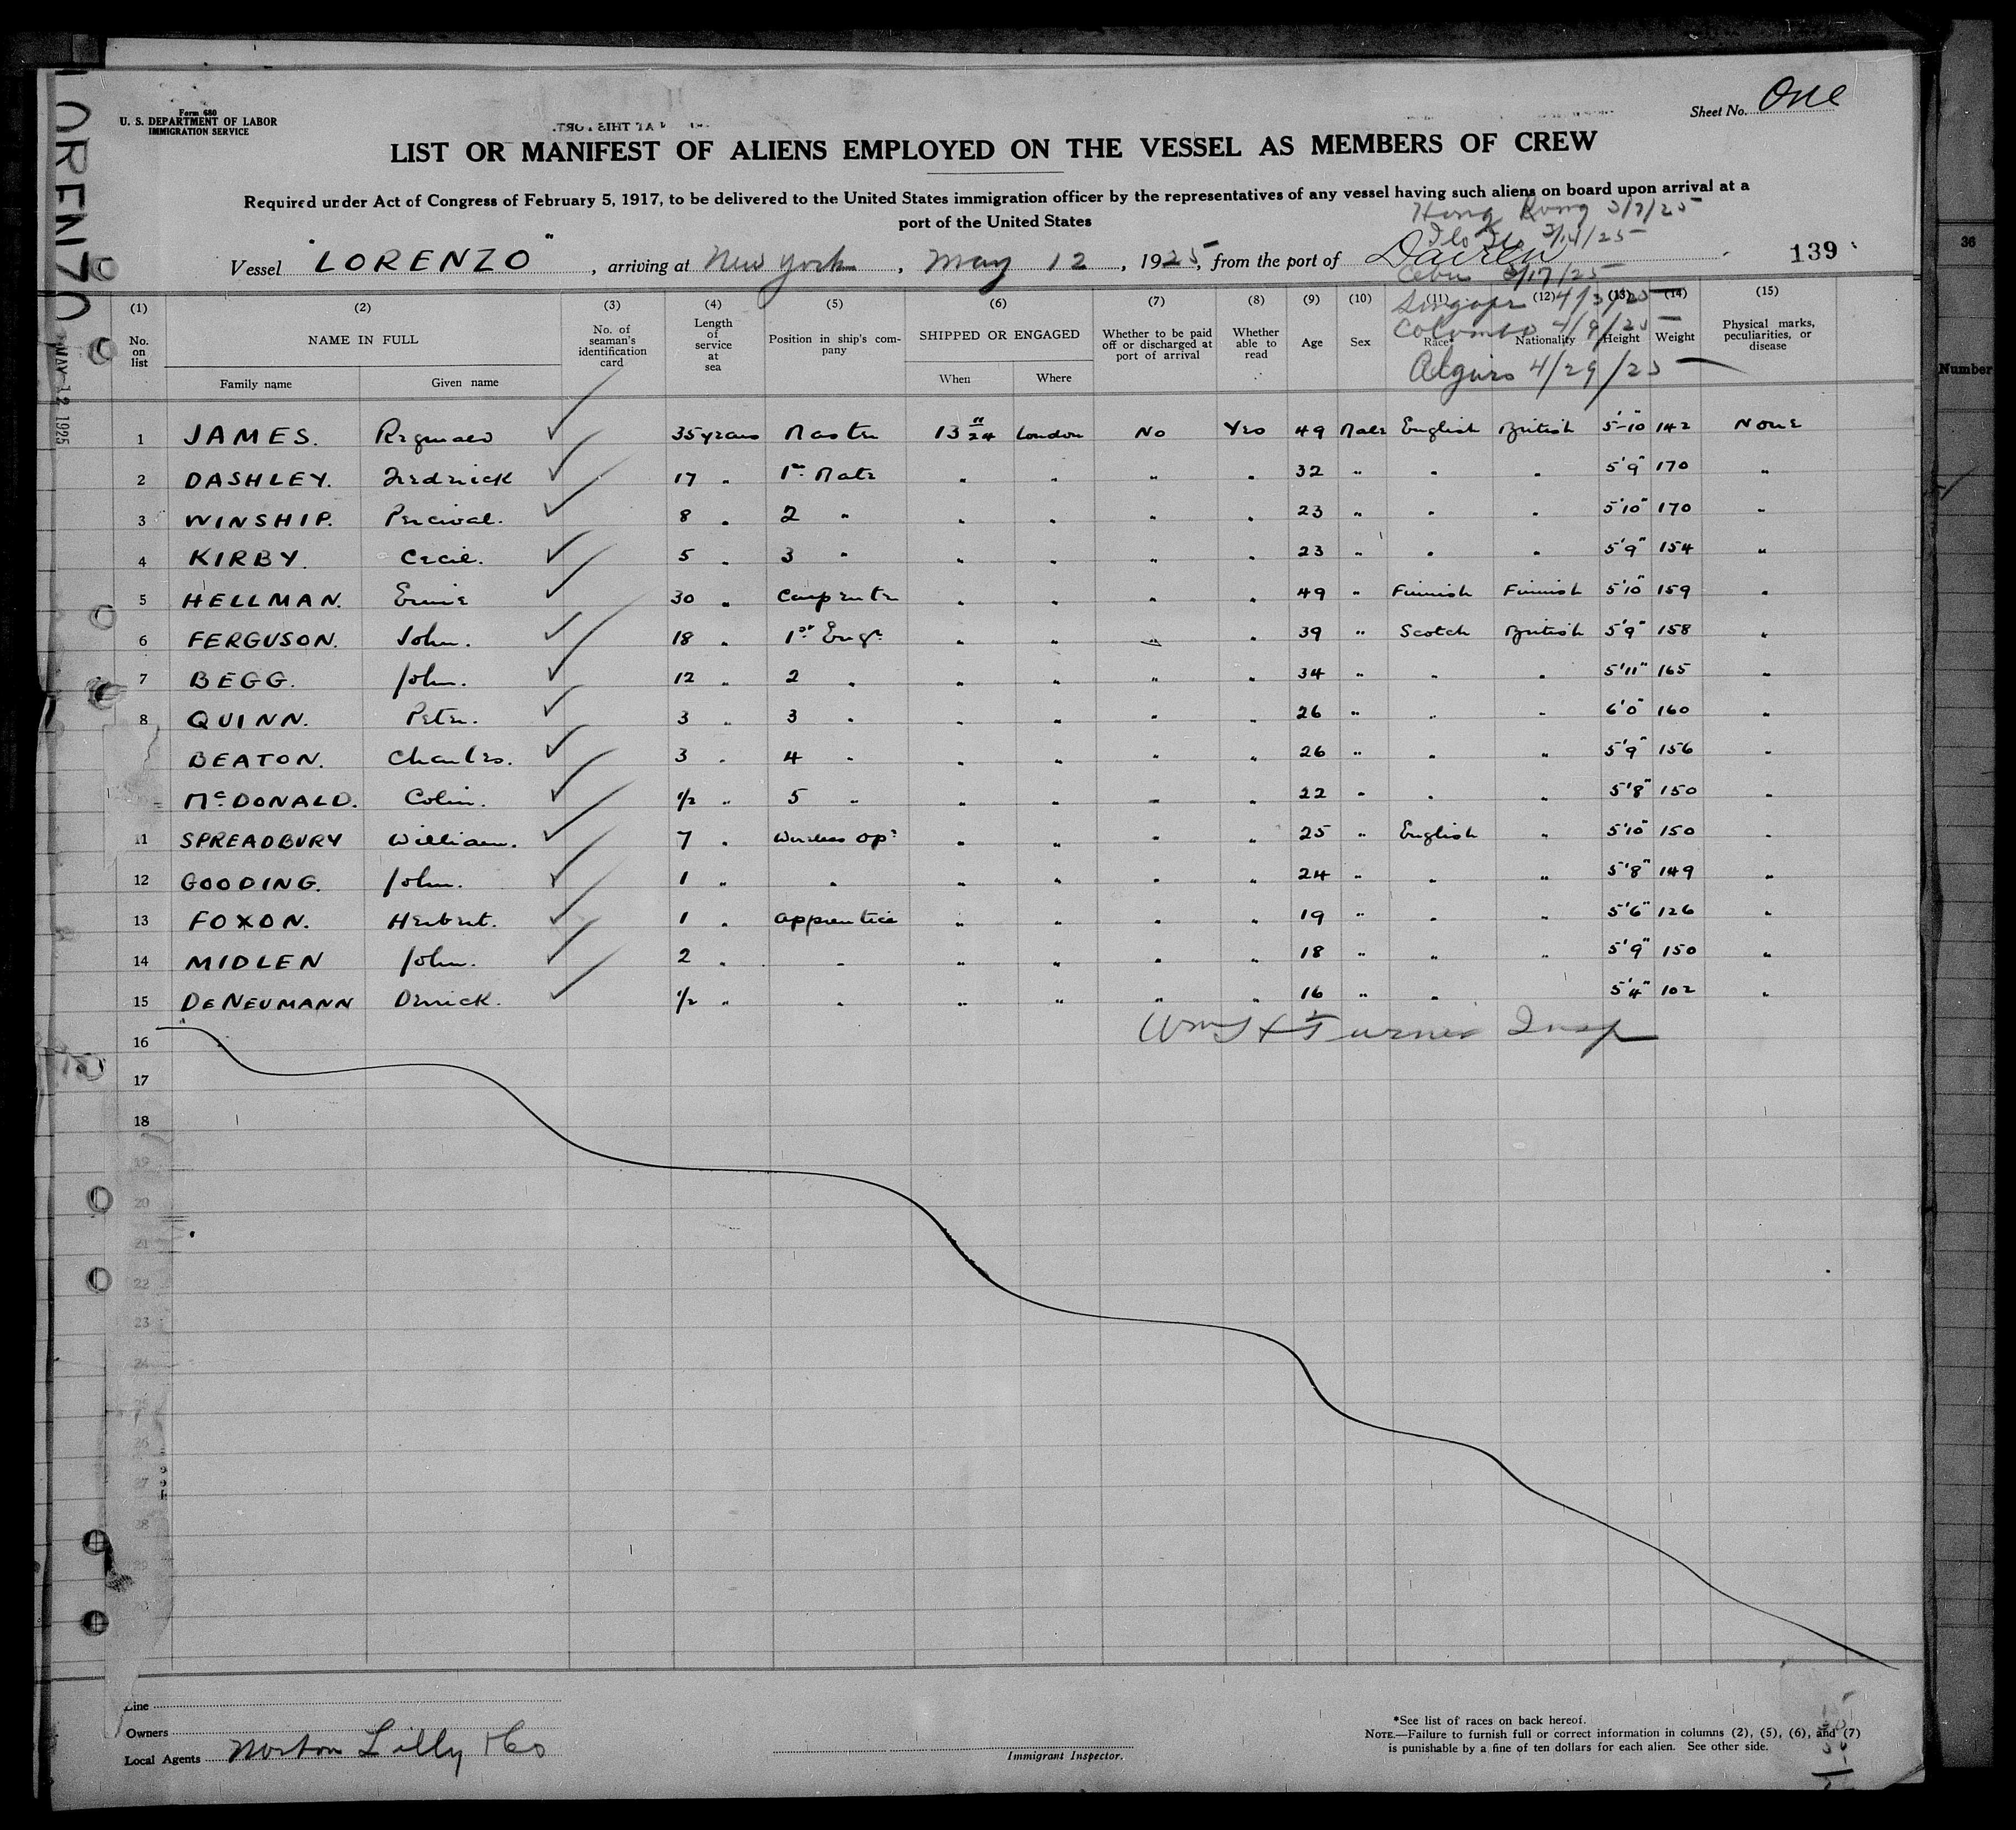 Form 680
U. S. DEPARTMENT OF LABOR
IMMIGRATION SERVICE
Sheet No. One
LIST OR MANIFEST OF ALIENS EMPLOYED ON THE VESSEL AS MEMBERS OF CREW
Required under Act of Congress of February 5, 1917, to be delivered to the United States immigration officer by the representatives of any vessel having such aliens on board upon arrival at a
port of the United States
Hong Kong 3/7/25
Ilo Ilo 3/14/25
Vessel "LORENZO", arriving at New York, May 12, 1925, from the port of Dairen
139
Cebu 3/17/25
Singapr 4/3/25
Colombo 4/9/25
Algiers 4/29/25
LORENZO
MAY 12 1925
36
Number
(1) (2) (3) (4) (5) (6) (7) (8) (9) (10) (11) (12) (13) (14) (15)
No. on list
NAME IN FULL
Family name
Given name
No. of seaman's identification card
Length of service at sea
Position in ship's company
SHIPPED OR ENGAGED
When
Where
Whether to be paid off or discharged at port of arrival
Whether able to read
Age
Sex
Race
Nationality
Height
Weight
Physical marks, peculiarities, or disease
1 JAMES. Reginald 35 years Master 13 11/24 London No Yes 49 Male English British 5'-10" 142 None
2 DASHLEY. Fredrick 17 " 1st Mate " " " " 32 " " " 5'9" 170 "
3 WINSHIP. Percival. 8 " 2 " " " " " 23 " " " 5'10" 170 "
4 KIRBY. Cecil. 5 " 3 " " " " " 23 " " " 5'9" 154 "
5 HELLMAN. Ernie 30 " Carpenter " " " " 49 " Finnish Finnish 5'10" 159 "
6 FERGUSON. John. 18 " 1st Engr " " " " 39 " Scotch British 5'9" 158 "
7 BEGG. John. 12 " 2 " " " " " 34 " " " 5'11" 165 "
8 QUINN. Peter. 3 " 3 " " " " " 26 " " " 6'0" 160 "
BEATON. Charles. 3 " 4 " " " " " 26 " " " 5'9" 156 "
McDONALD. Colin. 1/2 " 5 " " " " " 22 " " " 5'8" 150 "
11 SPREADBURY William. 7 " Wireless Opr " " " " 25 " English " 5'10" 150 "
12 GOODING. John. 1 " " " " " " 24 " " " 5'8" 149 "
13 FOXON. Herbert. 1 " apprentice " " " " 19 " " " 5'6" 126 "
14 MIDLEN John. 2 " " " " " " 18 " " " 5'9" 150 "
15 DENEUMANN Derrick. 1/2 " " " " " " 16 " " 5'4" 102 "
Turner Insp
16
17
18
19
20
21
22
23
24
25
26
27
28
29
Line
Owners
Local Agents Norton Lilly & Co
Immigrant Inspector.
*See list of races on back hereof.
NOTE.—Failure to furnish full or correct information in columns (2), (5), (6), and (7)
is punishable by a fine of ten dollars for each alien. See other side.